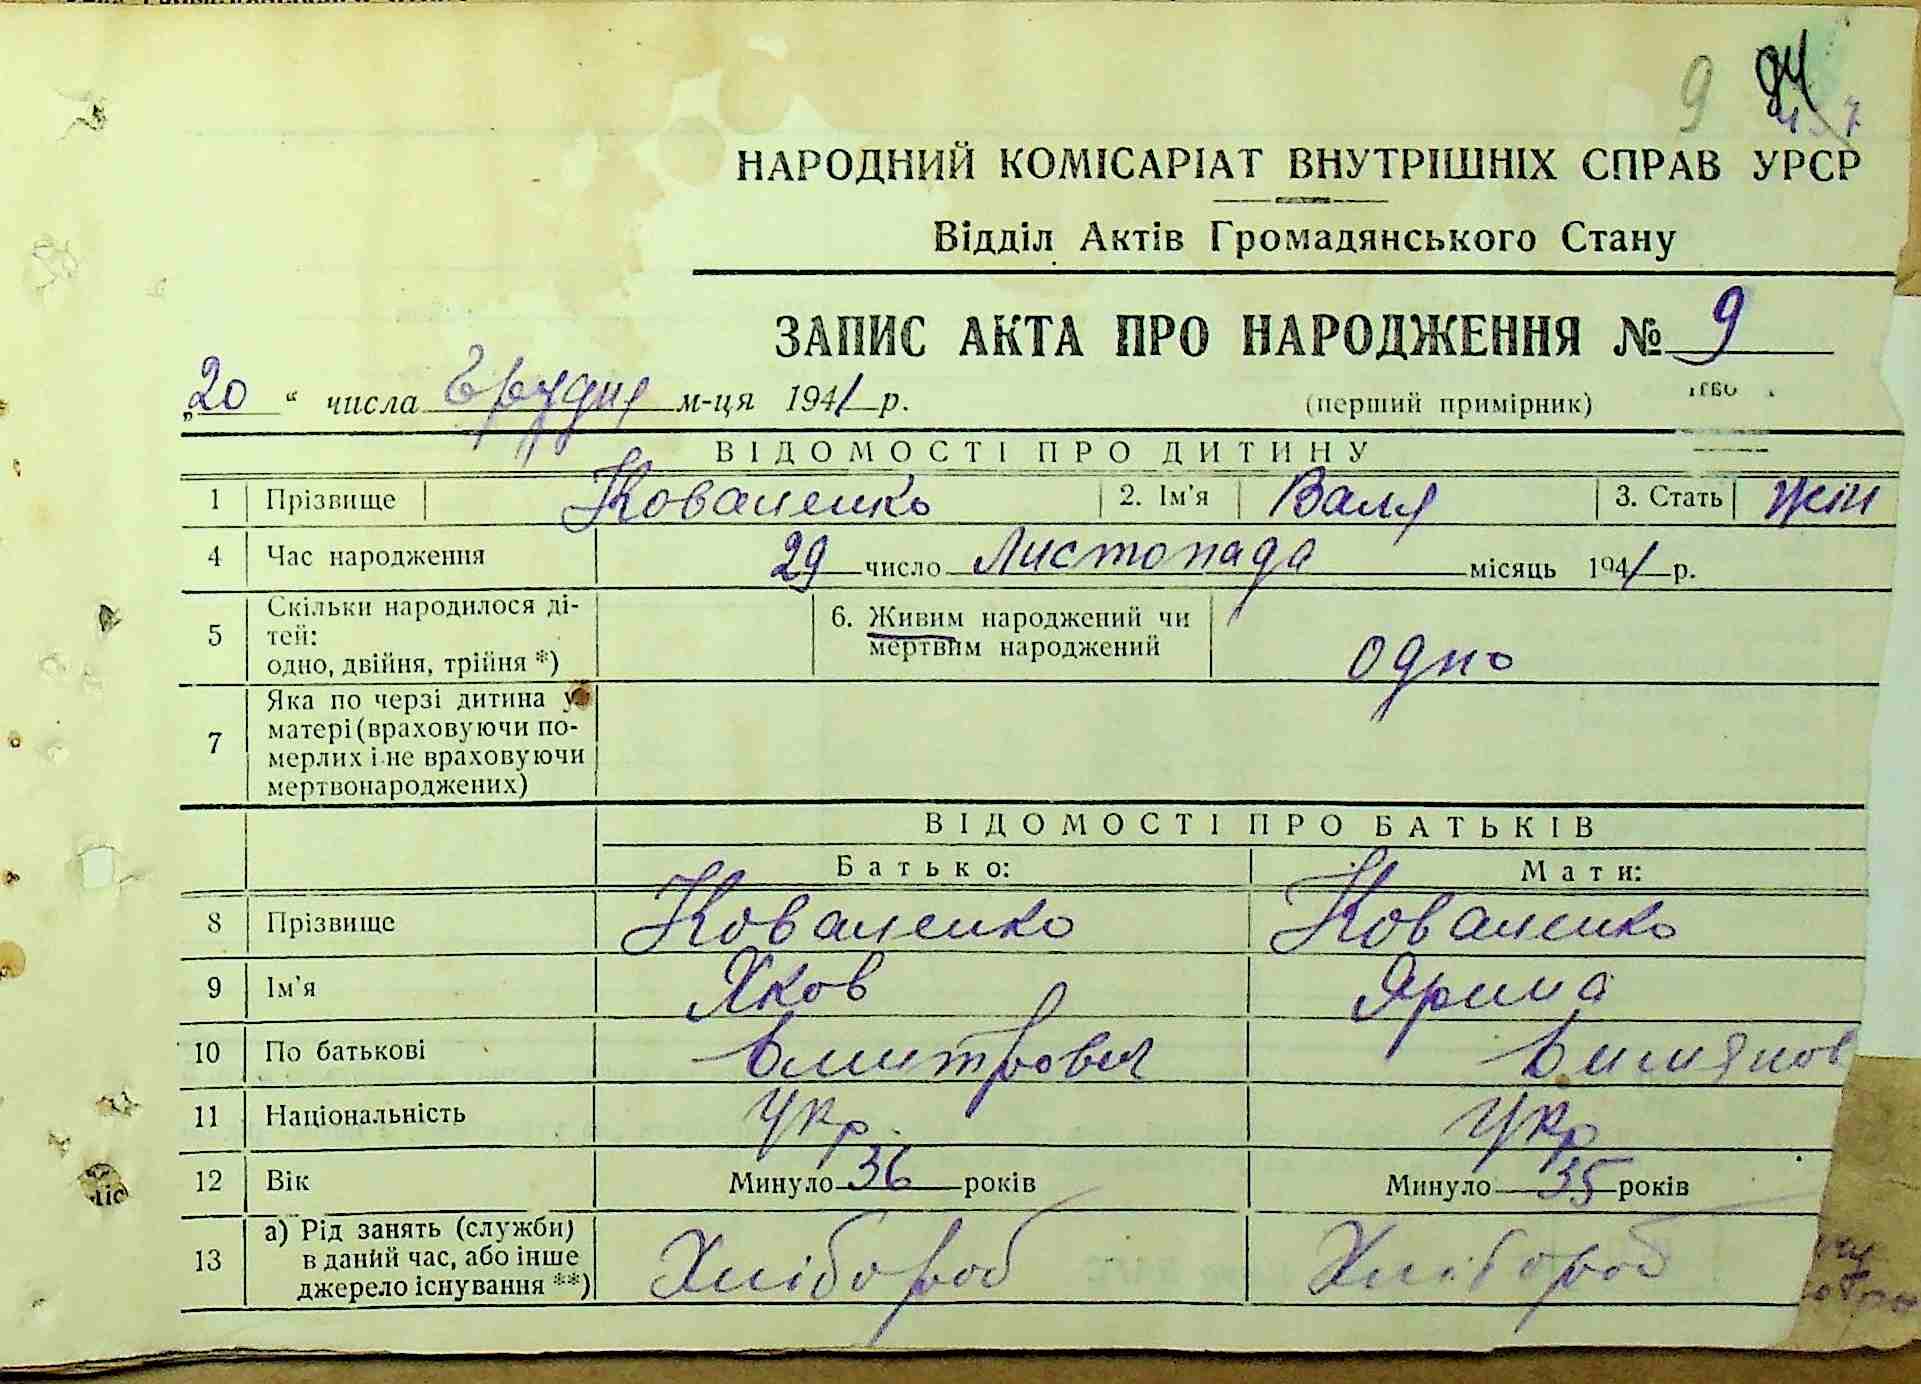 9 94
НАРОДНИЙ КОМІСАРІАТ ВНУТРІШНІХ СПРАВ УРСР
Відділ Актів Громадянського Стану
ЗАПИС АКТА ПРО НАРОДЖЕННЯ № 9
„20“ числа Грудня м-ця 1941 р. (перший примірник)
ВІДОМОСТІ ПРО ДИТИНУ
1 Прізвище Коваленко 2. Ім'я Валя 3. Стать жін
4 Час народження 29 число Листопада місяць 1941 р.
5 Скільки народилося ді-
тей:
одно, двійня, трійня *)
6. Живим народжений чи
мертвим народжений
одно
7 Яка по черзі дитина у
матері (враховуючи по-
мерлих і не враховуючи
мертвонароджених)
ВІДОМОСТІ ПРО БАТЬКІВ
Батько: Мати:
8 Прізвище Коваленко Коваленко
9 Ім'я Яков Ярина
10 По батькові Дмитрович
11 Національність Укр. Укр
12 Вік Минуло 36 років Минуло 35 років
13 а) Рід занять (служби)
в даний час, або інше
джерело існування **)
Хлібороб Хлібороб